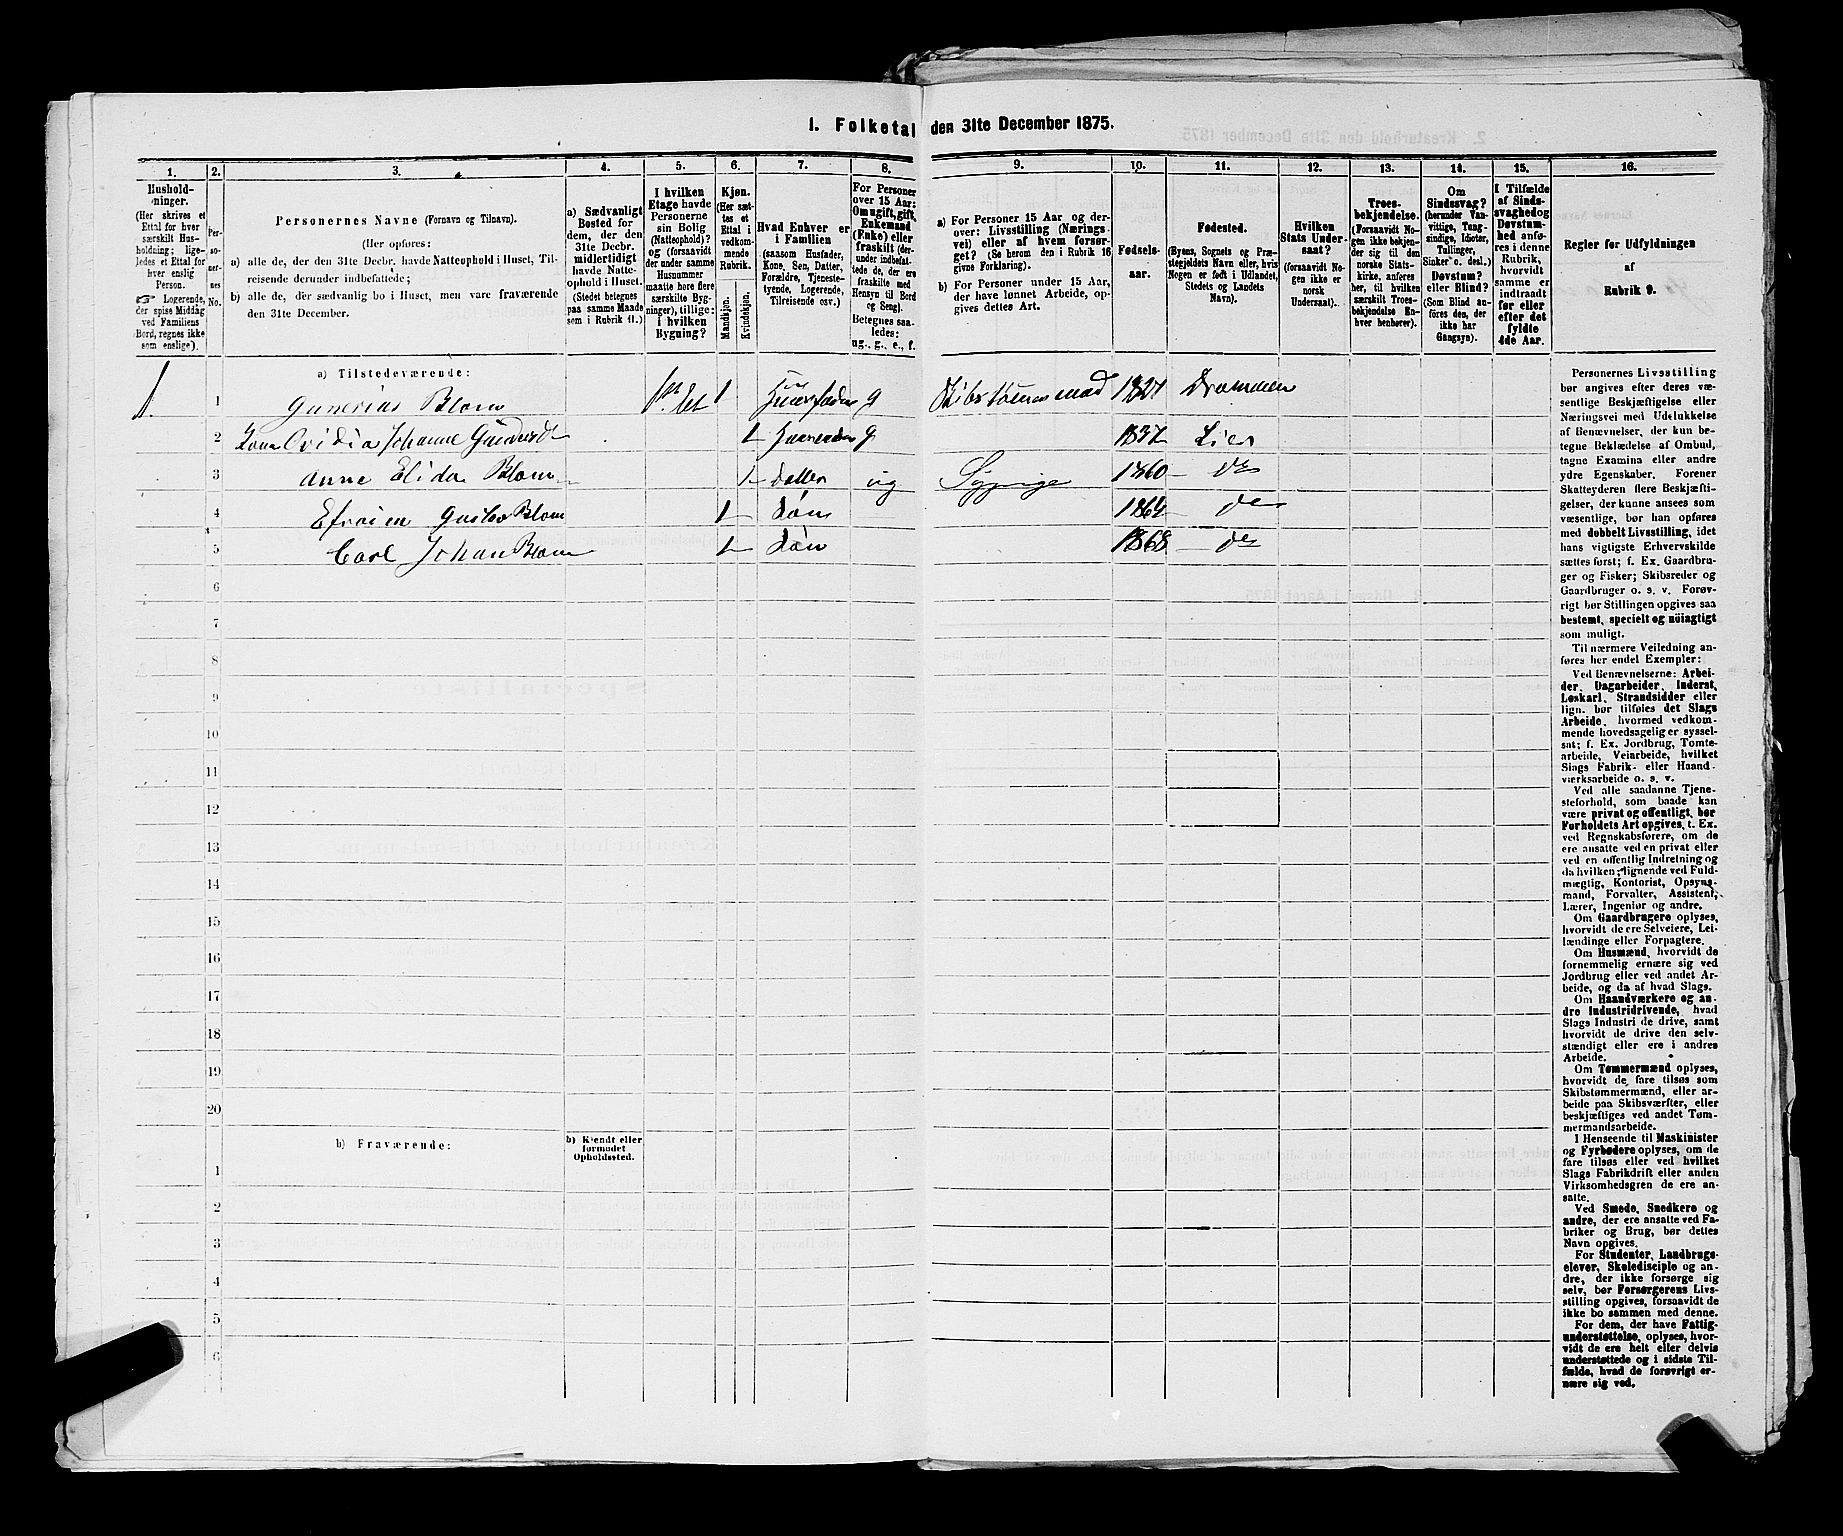 1. Folketal den 31te December 1875.
1.
2.
3.
4.
5.
6.
7.
8.
9.
10.
11.
12.
13.
14.
15.
16.
Hushold-
ninger.
(Her skrives et
Ettal for hver
særskilt Hus-
holdning; lige-
ledes et Ettal for
hver enslig
Person.
☞ Logerende,
der spise Middag
ved Familiens
Bord, regnes ikke
som enslige).
Per-
so-
ner-
nes
No.
Personernes Navne (Fornavn og Tilnavn).
(Her opføres:
a) alle de, der den 31te Decbr. havde Natteophold i Huset, Til-
reisende derunder indbefattede;
b) alle de, der sædvanlig bo i Huset, men vare fraværende
den 31te December.
a) Sædvanligt
Bosted for
dem, der den
31te Decbr.
midlertidigt
havde Natte-
ophold i Huset.
(Stedet betegnes
paa samme Maade
som i Rubrik 11.)
I hvilken
Etage havde
Personerne
sin Bolig
(Natteophold)?
og (forsaavidt
der under samme
Husnummer
maatte høre flere
særskilte Byg-
ninger), tillige:
i hvilken
Bygning?
Kjøn.
(Her sæt-
tes et
Ettal i
vedkom-
mende
Rubrik.
Mandkjøn.
Kvindekjøn.
Hvad Enhver er
i Familien
(saasom Husfader,
Kone, Søn, Datter,
Forældre, Tjeneste-
tyende, Logerende,
Tilreisende osv.)
For Personer
over 15 Aar:
Om ugift, gift,
Enkemand
(Enke) eller
fraskilt (der-
under indbefat-
tede de, der ere
fraskilte med
Hensyn til Bord
og Seng).
Betegnes saa-
ledes:
ug., g., e., f.
a) For Personer 15 Aar og der-
over: Livsstilling (Nærings-
vei) eller af hvem forsør-
get? (Se herom den i Rubrik 16
givne Forklaring).
b) For Personer under 15 Aar,
der have lønnet Arbeide, op-
gives dettes Art.
Fødsels-
aar.
Fødested.
(Byens, Sognets og Præ-
stegjeldets Navn eller, hvis
Nogen er født i Udlandet,
Stedets og Landets
Navn).
Hvilken
Stats Under-
saat?
(forsaavidt No-
gen ikke er
norsk
Undersaat).
Troes-
bekjendelse.
(Forsaavidt No-
gen ikke bekjen-
der sig til den
norske Stats-
kirke, anføres
her, til hvilken
særskilt Troes-
bekjendelse En-
hver henhører).
Om
Sindssvag?
(herunder Van-
vittige, Tung-
sindige, Idioter,
Tullinger,
Sinker o. desl.)
Døvstum?
eller Blind?
(Som Blind an-
føres den, der
ikke har
Gangsyn).
I Tilfælde
af Sinds-
svaghed og
Døvstum-
hed anfø-
res i denne
Rubrik,
hvorvidt
samme er
indtraadt
før eller
efter det
fyldte
4de Aar.
Regler for Udfyldningen
af
Rubrik 9.
a) Tilstedeværende:
1 1 Gunerius Blom 1ste Et 1 Huusfader g 1827 Drammen
2 Kone Ovidia Johanne 1 g 1837 Lier
3 Anne Elida Blom 1 datter ug Sypige 1860 do
4 Efraim Gustav Blom 1 Søn 1864 do
5 Carl Johan Blom 1 Søn 1868 do
6
7
8
9
10
11
12
13
14
15
16
17
18
19
20
b) Fraværende:
b) Kjendt eller
formodet
Opholdssted.
1
2
3
4
5
6
Personernes Livsstilling
bør angives efter deres væ-
sentlige Beskjæftigelse eller
Næringsvei med Udelukkelse
af Benævnelser, der kun be-
tegne Beklædelse af Ombud,
tagne Examina eller andre
ydre Egenskaber. Forener
Skatteyderen flere Beskjæfti-
gelser, der kunne ansees som
væsentlige, bør han opføres
med dobbelt Livsstilling, idet
hans vigtigste Erhvervskilde
sættes først; f. Ex. Gaardbru-
ger og Fisker; Skibsreder og
Gaardbruger o. s. v. Forøv-
rigt bør Stillingen opgives saa
bestemt, specielt og nøiagtigt
som muligt.
Til nærmere Veiledning an-
føres her endel Exempler:
Ved Benævnelserne: Arbei-
der, Dagarbeider, Inderst,
Løskarl, Strandsidder eller
lign. bør tilføies det Slags
Arbeide, hvormed vedkom-
mende hovedsagelig er syssel-
sat; f. Ex. Jordbrug, Tomte-
arbeide, Veiarbeide, hvilket
Slags Fabrik- eller Haand-
værksarbeide o. s. v.
Ved alle saadanne Tjene-
steforhold, som baade kan
være privat og offentligt, bør
Forholdets Art opgives, t. Ex.
ved Regnskabsførere, om de
ere ansatte ved en privat eller
ved en offentlig Indretning og
da hvilken; lignende ved Fuld-
mægtig, Kontorist, Opsyns-
mand, Forvalter, Assistent,
Lærer, Ingeniør og andre.
Om Gaardbrugere oplyses,
hvorvidt de ere Selveiere, Lei-
lændinge eller Forpagtere.
Om Husmænd, hvorvidt de
fornemmelig ernære sig ved
Jordbrug eller ved andet Ar-
beide, og da af hvad Slags.
Om Haandværkere og an-
dre Industridrivende, hvad
Slags Industri de drive, samt
hvorvidt de drive den selv-
stændigt eller ere i andres
Arbeide.
Om Tømmermænd oplyses,
hvorvidt de fare tilsøs som
Skibstømmermænd, eller ar-
beide paa Skibsværfter, eller
beskjæftiges ved andet Tøm-
mermandsarbeide.
I Henseende til Maskinister
og Fyrbødere oplyses, om de
fare tilsøs eller ved hvilket
Slags Fabrikdrift eller anden
Virksomhedsgren de ere an-
satte.
Ved Smede, Snedkere og
andre, der ere ansatte ved Fa-
briker og Brug, bør dettes
Navn opgives.
For Studenter, Landbrugs-
elever, Skoledisciple og an-
dre, der ikke forsørge sig
selv, bør Forsørgerens Livs-
stilling opgives, forsaavidt de
ikke bo sammen med denne.
For dem, der have Fattig-
understøttelse, oplyses, hvor-
vidt de ere helt eller delvis
understøttede og i sidste Til-
fælde, hvad de forøvrigt er-
nære sig ved.